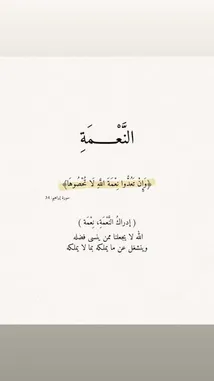 النَّعْـــمَةِ
﴿وَإِنْ تَعُدُّوا نِعْمَةَ اللَّهِ لَا تُحْصُوهَا﴾
سورة إبراهيم
( إدراكُ النَّعْمَةِ، نِعْمَة )
الله لا يجعلنا ممن ينسى فضله
وينشغل عن ما يملكه بما لا يملكه